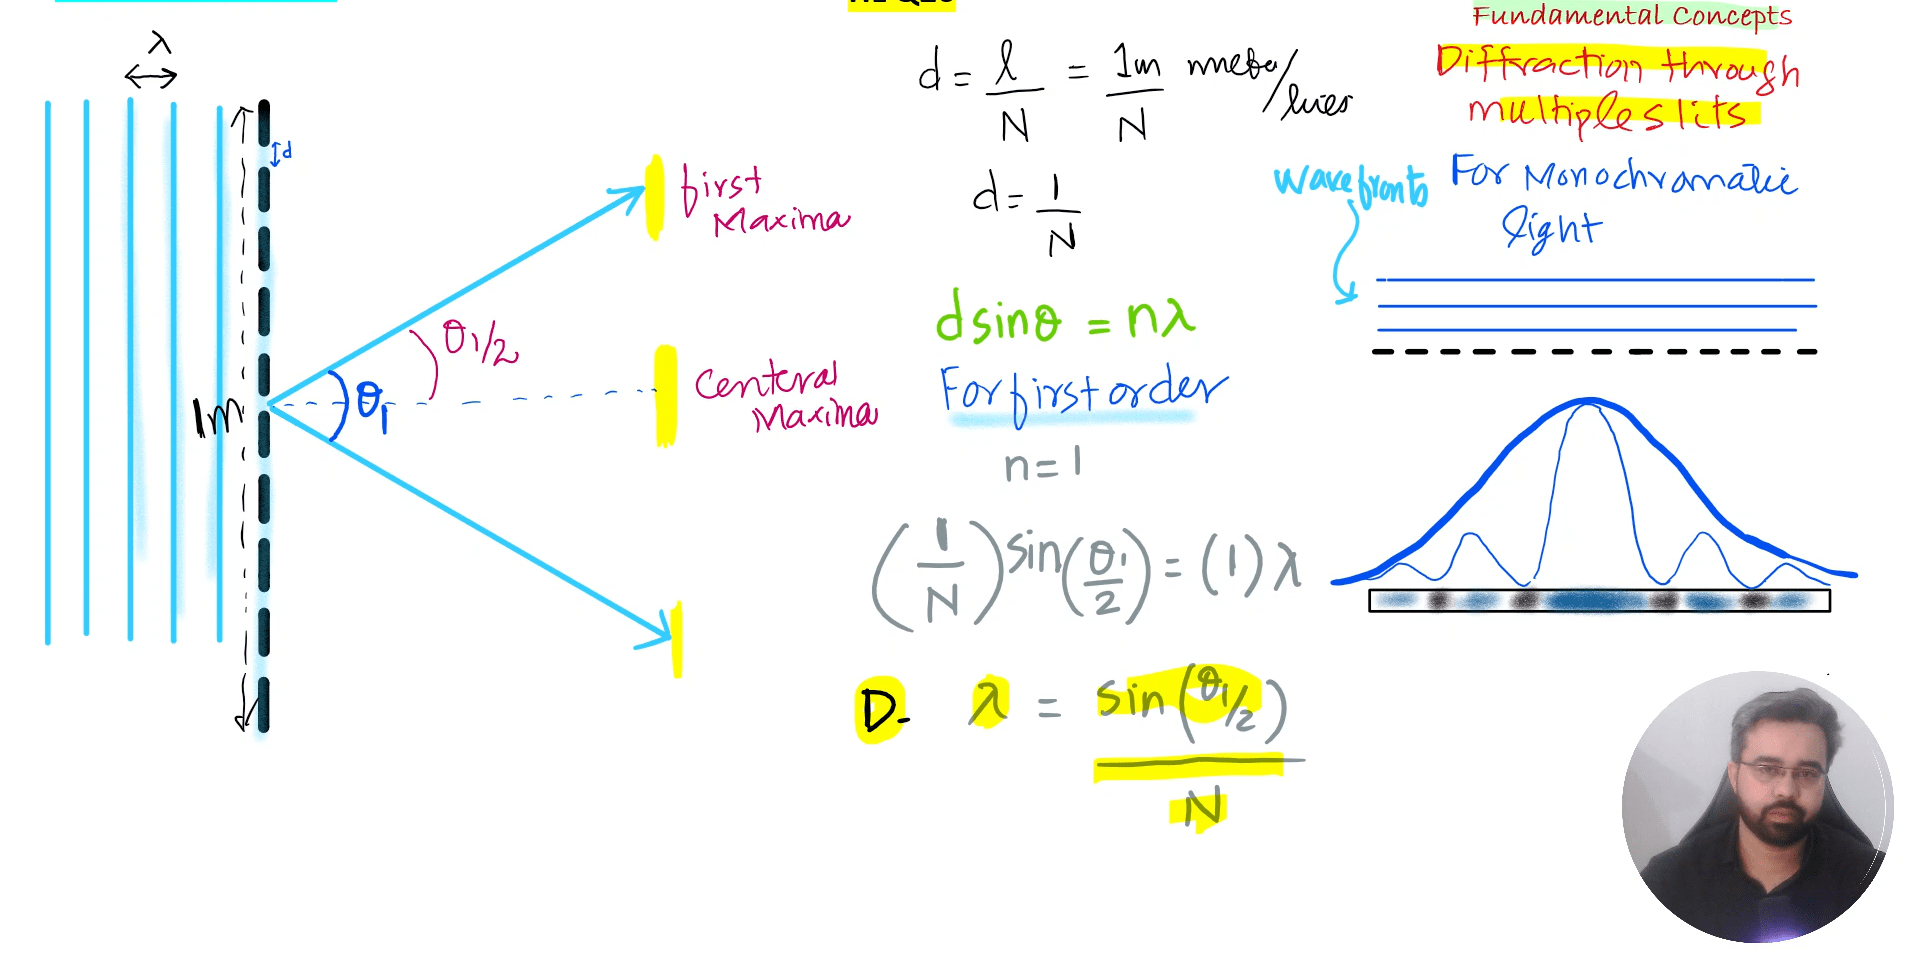 λ
d
1m
θ1
θ1/2
first
Maxima
Centeral
Maxima
d = l/N = 1m/N meter/lines
d = 1/N
dsinθ = nλ
For first order
n = 1
(1/N) sin(θ1/2) = (1) λ
D. λ = sin(θ1/2)/N
Fundamental Concepts
Diffraction through
multiple slits
For Monochromatic
light
wavefronts